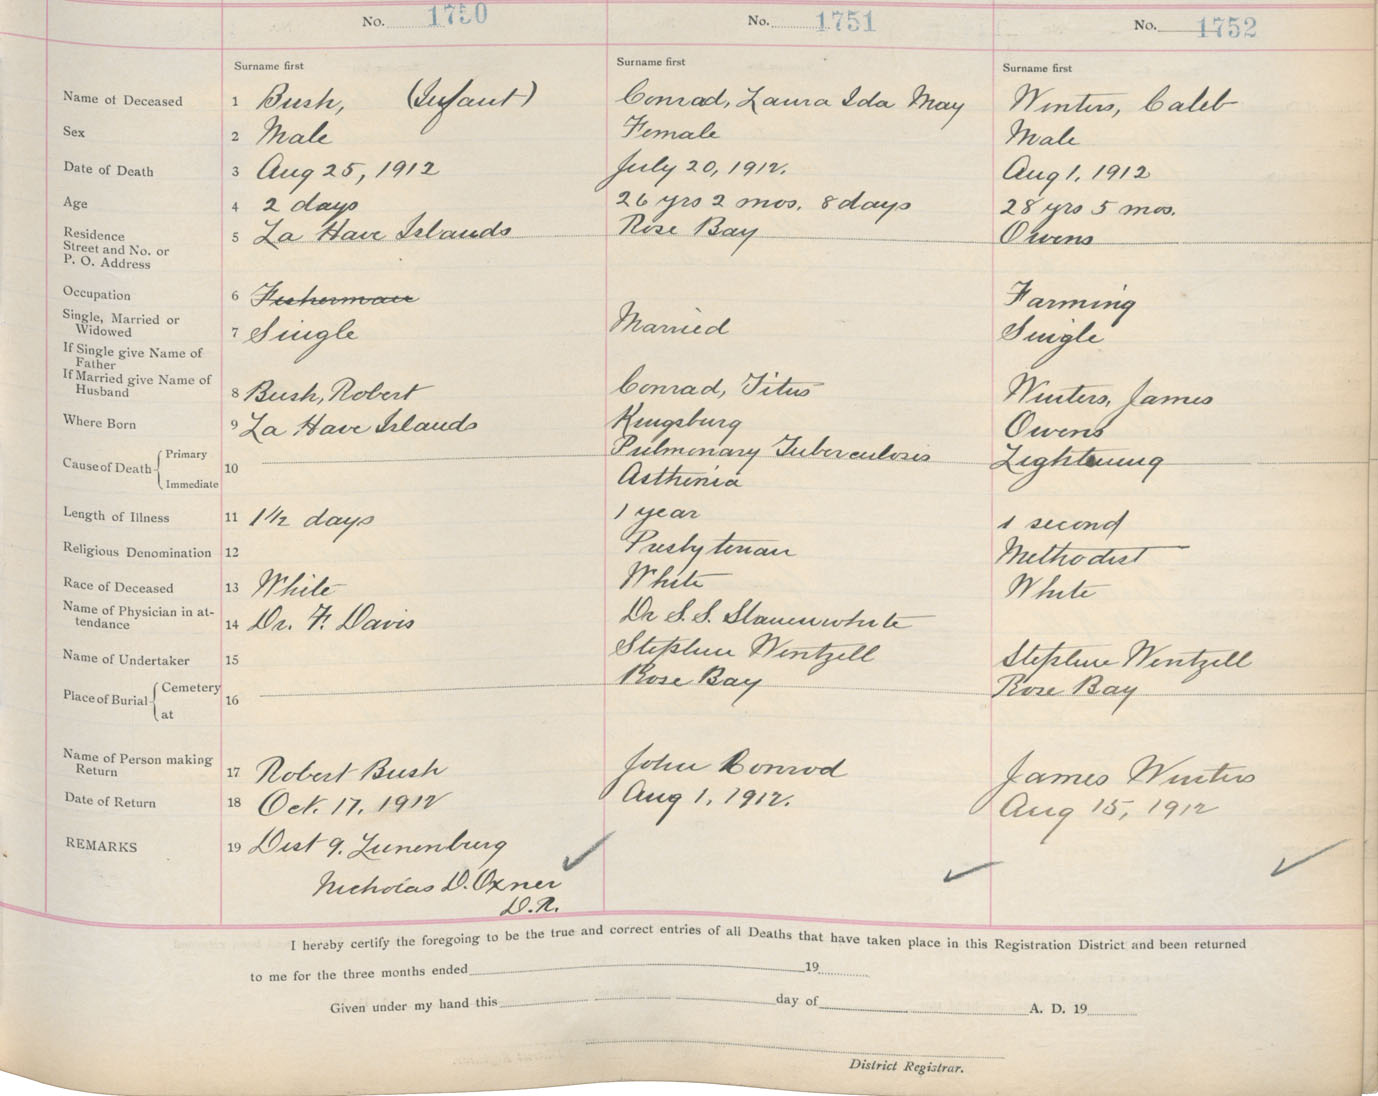 No. 1750 No. 1751 No. 1752
Surname first Surname first Surname first
Name of Deceased 1 Bush, (Infant) Conrad, Laura Ida May Winters, Caleb
Sex 2 Male Female Male
Date of Death 3 Aug 25, 1912 July 20, 1912. Aug 1, 1912
Age 4 2 days 26 yrs 2 mos. 8 days 28 yrs 5 mos.
Residence
Street and No. or 5 La Have Islands Rose Bay Owens
P. O. Address
Occupation 6 Fisherman Farming
Single, Married or
Widowed 7 Single Married Single
If Single give Name of
Father
If Married give Name of
Husband 8 Bush, Robert Conrad, Titus Winters, James
Where Born 9 La Have Islands Kingsburg Owens
Cause of Death Primary 10 Pulmonary Tuberculosis Lightning
Immediate Asthinia
Length of Illness 11 1 1/2 days 1 year 1 second
Religious Denomination 12 Presbyterian Methodist
Race of Deceased 13 White White White
Name of Physician in at-
tendance 14 Dr. F. Davis Dr S. S. Slauenwhite
Name of Undertaker 15 Stephen Wentzell Stephen Wentzell
Place of Burial Cemetery 16 Rose Bay Rose Bay
at
Name of Person making
Return 17 Robert Bush John Conrod James Winters
Date of Return 18 Oct. 17, 1912 Aug 1, 1912. Aug 15, 1912
REMARKS 19 Dist 9. Lunenburg
Nicholas D. Oxner
D.R.
I hereby certify the foregoing to be the true and correct entries of all Deaths that have taken place in this Registration District and been returned
to me for the three months ended 19
Given under my hand this day of A. D. 19
District Registrar.